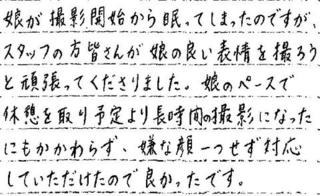 娘が撮影開始から眠ってしまったのですが、
スタッフの方皆さんが娘の良い表情を撮ろう
と頑張ってくださりました。娘のペースで
休憩を取り予定より長時間の撮影になった
にもかかわらず、嫌な顔一つせず対応
していただけたので良かったです。